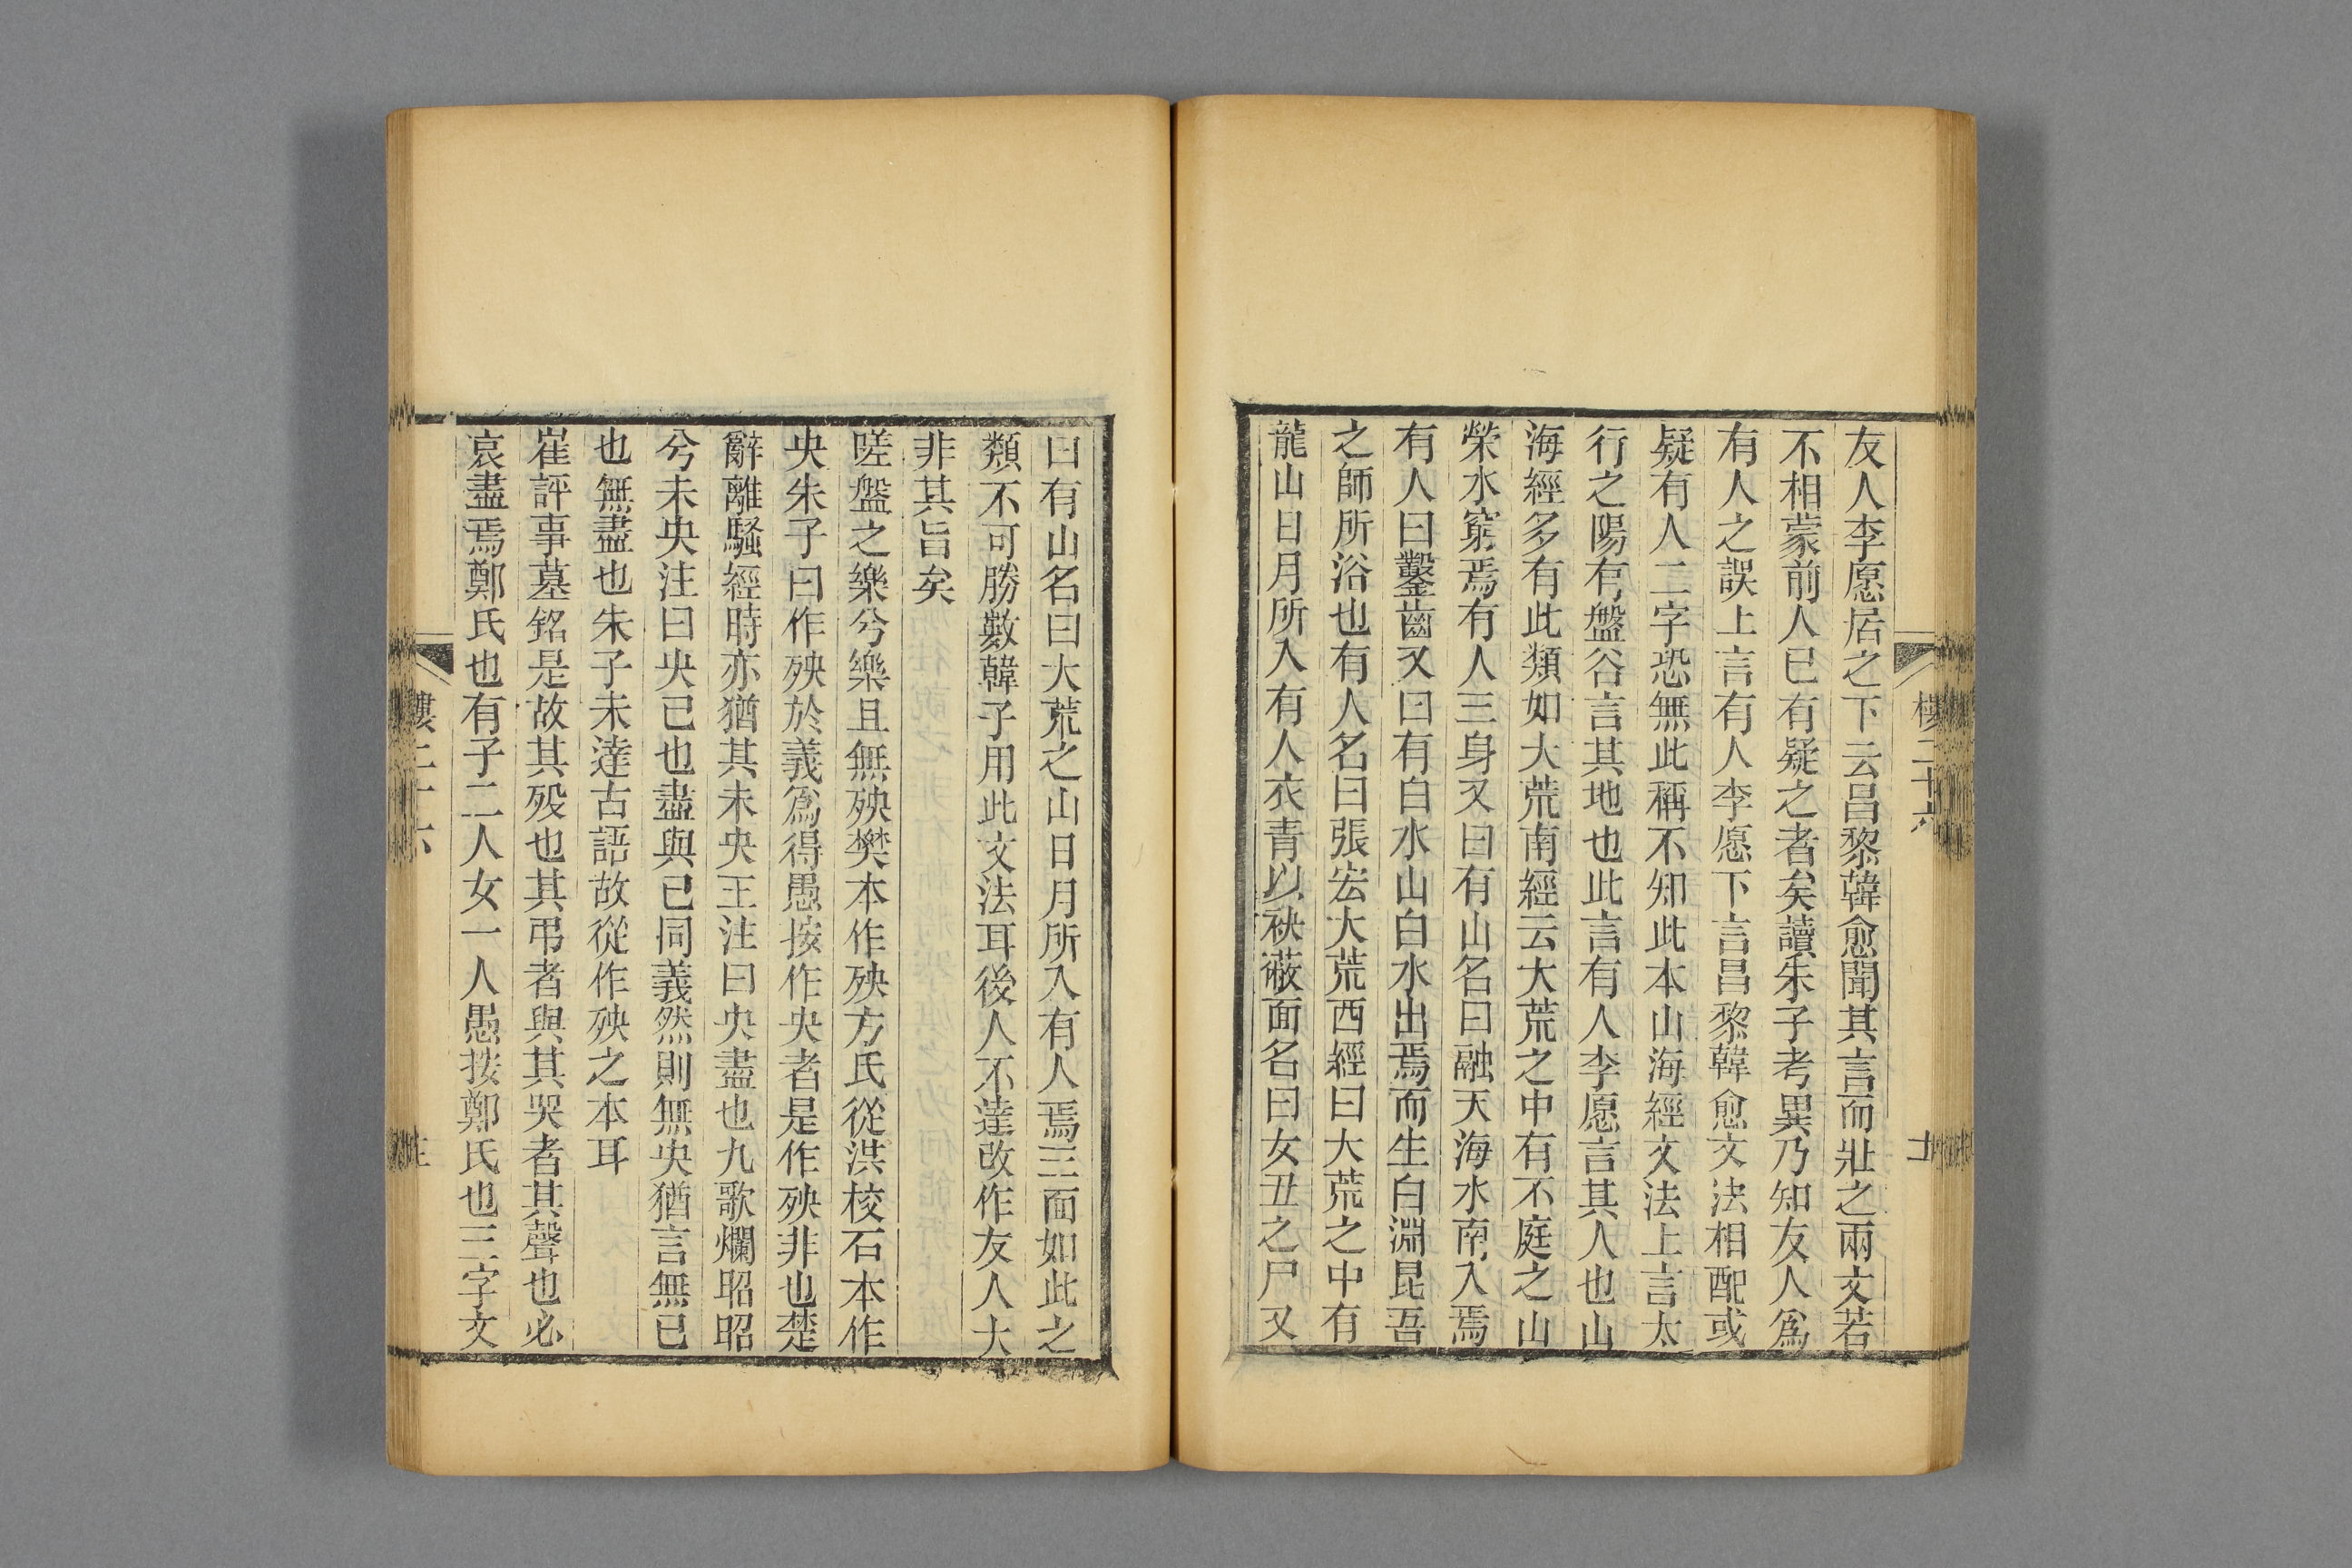 友人李愿居之下云昌黎韓愈聞其言而壯之兩文若
不相蒙前人已有疑之者矣讀朱子考異乃知友人爲
有人之誤上言有人李愿下言昌黎韓愈文法相配或
疑有人二字恐無此稱不知此本山海經文法上言太
行之陽有盤谷言其地也此言有人李愿言其人也山
海經多有此類如大荒南經云大荒之中有不庭之山
榮水窮焉有人三身又曰有山名曰融天海水南入焉
有人曰鑿齒又曰有白水山白水出焉而生白淵昆吾
之師所浴也有人名曰張宏大荒西經曰大荒之中有
龍山日月所入有人衣青以袂蔽面名曰女丑之尸又
曰有山名曰大荒之山日月所入有人焉三面如此之
類不可勝數韓子用此文法耳後人不達改作友人大
非其旨矣
嗟盤之樂兮樂且無殃樊本作殃方氏從洪校石本作
央朱子曰作殃於義爲得愚按作央者是作殃非也楚
辭離騷經時亦猶其未央王注曰央盡也九歌爛昭昭
兮未央注曰央已也盡與已同義然則無央猶言無已
也無盡也朱子未達古語故從作殃之本耳
崔評事墓銘是故其歿也其弔者與其哭者其聲也必
哀盡焉鄭氏也有子二人女一人愚按鄭氏也三字文